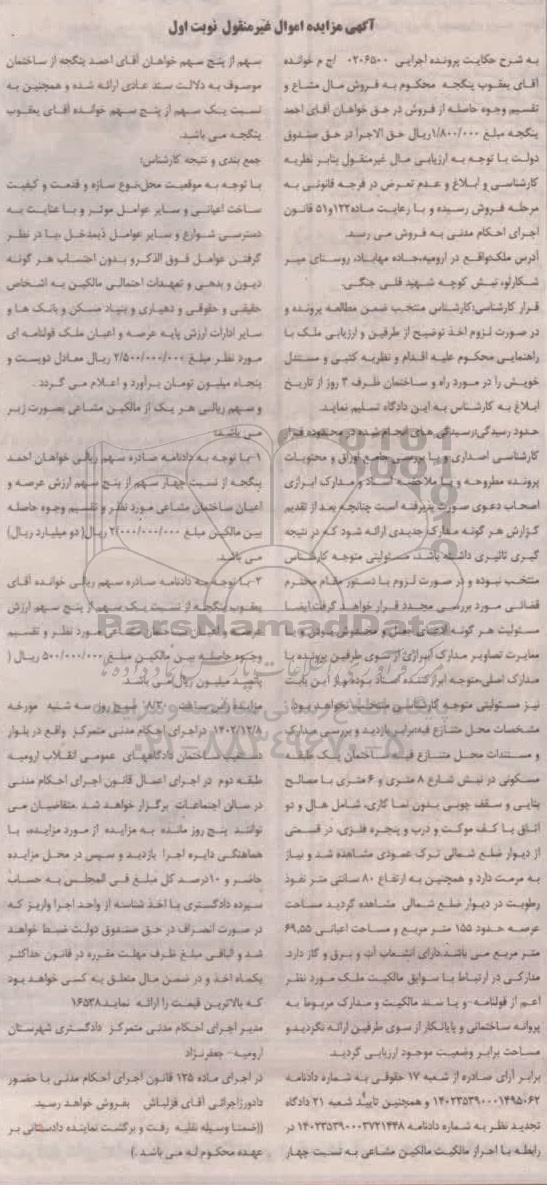 آگهی مزایده اموال غیرمنقول نوبت اول
به شرح حکایت پرونده اجرایی ۰۲۰۶۵۰۰ اج م خوانده
آقای یعقوب ینگجه محکوم به فروش مال مشاع و
تقسیم وجوه حاصله از فروش در حق خواهان آقای احمد
ینگجه مبلغ ۱/۸۰۰/۰۰۰ریال حق الاجرا در حق صندوق
دولت با توجه به ارزیابی مال غیرمنقول بنابر نظریه
کارشناسی و ابلاغ و عدم تعرض در فرجه قانونی به
مرحله فروش رسیده و با رعایت ماده۱۲۲و۵۱ قانون
اجرای احکام مدنی به فروش می رسد.
آدرس ملک:واقع در ارومیه،جاده مهاباد، روستای میر
شکارلو، نبش کوچه شهید قلی جنگی.
قرار کارشناسی:کارشناس منتخب ضمن مطالعه پرونده و
در صورت لزوم اخذ توضیح از طرفین و ارزیابی ملک با
راهنمایی محکوم علیه اقدام و نظریه کتبی و مستدل
خویش را در مورد راه و ساختمان ظرف ۳ روز از تاریخ
ابلاغ به کارشناس به این دادگاه تسلیم نماید.
حدود رسیدگی:رسیدگی های انجام شده در محدوده قرار
کارشناسی اصداری و با بررسی جامع اوراق و محتویات
پرونده مطروحه و با ملاحضه اسناد و مدارک ابرازی
اصحاب دعوی صورت پذیرفته است چنانچه بعد از تقدیم
گزارش هر گونه مدارک جدیدی ارائه شود که در نتیجه
گیری تاثیری داشته باشد، مسئولیتی متوجه کارشناس
منتخب نبوده و در صورت لزوم با دستور مقام محترم
قضائی مورد بررسی مجدد قرار خواهد گرفت.ایضا
مسئولیت هر گونه ادعای جعل و مخدوش بودن و یا
مغایرت تصاویر مدارک ابرازی از سوی طرفین پرونده با
مدارک اصلی،متوجه ابراز کننده اسناد بوده و از این بابت
نیز مسئولیتی متوجه کارشناس منتخب نخواهد بود.
مشخصات محل متنازع فیه:برابر بازدید و بررسی مدارک
و مستندات محل متنازع فیه ساختمان یک طبقه
مسکونی در نبش شارع ۸ متری و ۶ متری با مصالح
بنایی و سقف چوبی بدون نما کاری، شامل هال و دو
اتاق با کف موکت و درب و پنجره فلزی، در قسمتی
از دیوار ضلع شمالی ترک عمودی مشاهده شد و نیاز
به مرمت دارد و همچنین به ارتفاع ۸۰ سانتی متر نفوذ
رطوبت در دیوار ضلع شمالی مشاهده گردید مساحت
عرصه حدود ۱۵۵ متر مربع و مساحت اعیانی ۶۹٫۵۵
متر مربع می باشد.دارای انشعاب آب و برق و گاز دارد.
مدارکی در ارتباط با سوابق مالکیت ملک مورد نظر
اعم از قولنامه و یا سند مالکیت و مدارک مربوط به
پروانه ساختمانی و پایانکار از سوی طرفین ارائه نگردید.و
مساحت برابر وضعیت موجود ارزیابی گردید.
برابر آرای صادره از شعبه ۱۷ حقوقی به شماره دادنامه
۱۴۰۲۳۵۳۹۰۰۰۱۴۹۵۰۶۲ و همچنین تایید شعبه ۲۱ دادگاه
تجدید نظر به شماره دادنامه ۱۴۰۲۳۵۳۹۰۰۰۳۷۲۱۴۴۸ در
رابطه با احراز مالکیت مالکین مشاعی به نسبت چهار
سهم از پنج سهم خواهان آقای احمد ینگجه از ساختمان
موصوف به دلالت سند عادی ارائه شده و همچنین به
نسبت یک سهم از پنج سهم خوانده آقای یعقوب
ینگجه می باشد.
جمع بندی و نتیجه کارشناس:
با توجه به موقعیت محل،نوع سازه و قدمت و کیفیت
ساخت اعیانی و سایر عوامل موثر و با عنایت به
دسترسی شوارع و سایر عوامل ذیمدخل ،با در نظر
گرفتن عوامل فوق الذکر،و بدون احتساب هر گونه
دیون و بدهی و تعهدات احتمالی مالکین به اشخاص
حقیقی و حقوقی و دهیاری و بنیاد مسکن و بانک ها و
سایر ادارات ارزش پایه عرصه و اعیان ملک قولنامه ای
مورد نظر مبلغ ۲/۵۰۰/۰۰۰/۰۰۰ ریال معادل دویست و
پنجاه میلیون تومان برآورد و اعلام می گردد .
و سهم ریالی هر یک از مالکین مشاعی بصورت زیر
می باشد:
۱-با توجه به دادنامه صادره سهم ریالی خواهان احمد
ینگجه از نسبت چهار سهم از پنج سهم ارزش عرصه و
اعیان ساختمان مشاعی مورد نظر و تقسیم وجوه حاصله
بین مالکین مبلغ ۲/۰۰۰/۰۰۰/۰۰۰ ریال( دو میلیارد ریال)
می باشد.
۲-با توجه به دادنامه صادره سهم ریالی خوانده آقای
یعقوب ینگجه از نسبت یک سهم از پنج سهم ارزش
عرصه و اعیان ساختمان مشاعی مورد نظر و تقسیم
وجوه حاصله بین مالکین مبلغ ۵۰۰/۰۰۰/۰۰۰ ریال (
پانصد میلیون ریال)می باشد.
مزایده راس ساعت ۸/۳۰ صبح روز سه شنبه مورخه
۱۴۰۲/۱۲/۸ در اجرای احکام مدنی متمرکز واقع در بلوار
دستغیب ساختمان دادگاههای عمومی انقلاب ارومیه
طبقه دوم در اجرای اعمال قانون اجرای احکام مدنی
در سالن اجتماعات برگزار خواهد شد .متقاضیان می
توانند پنج روز مانده به مزایده از مورد مزایده، با
هماهنگی دایره اجرا بازدید و سپس در محل مزایده
حاضر و ۱۰درصد کل مبلغ فی المجلس به حساب
سپرده دادگستری با اخذ شناسه از واحد اجرا واریز که
در صورت انصراف در حق صندوق دولت ضبط خواهد
شد و الباقی مبلغ ظرف مهلت مقرره در قانون حداکثر
یکماه اخذ و در ضمن مال متعلق به کسی خواهد بود
که بالاترین قیمت را ارائه نماید.۱۶۵۳۸
مدیر اجرای احکام مدنی متمرکز دادگستری شهرستان
ارومیه- جعفرنژاد
در اجرای ماده ۱۲۵ قانون اجرای احکام مدنی با حضور
دادورزاجرائی آقای قزلباش بفروش خواهد رسید.
((ضمنا وسیله نقلیه رفت و برگشت نماینده دادستانی بر
عهده محکوم له می باشد .)
ParsNamadData
پایگاه اطلاع رسانی مناقصه و مزایده
۰۲۱-۸۸۳۴۹۶۷۰-۵